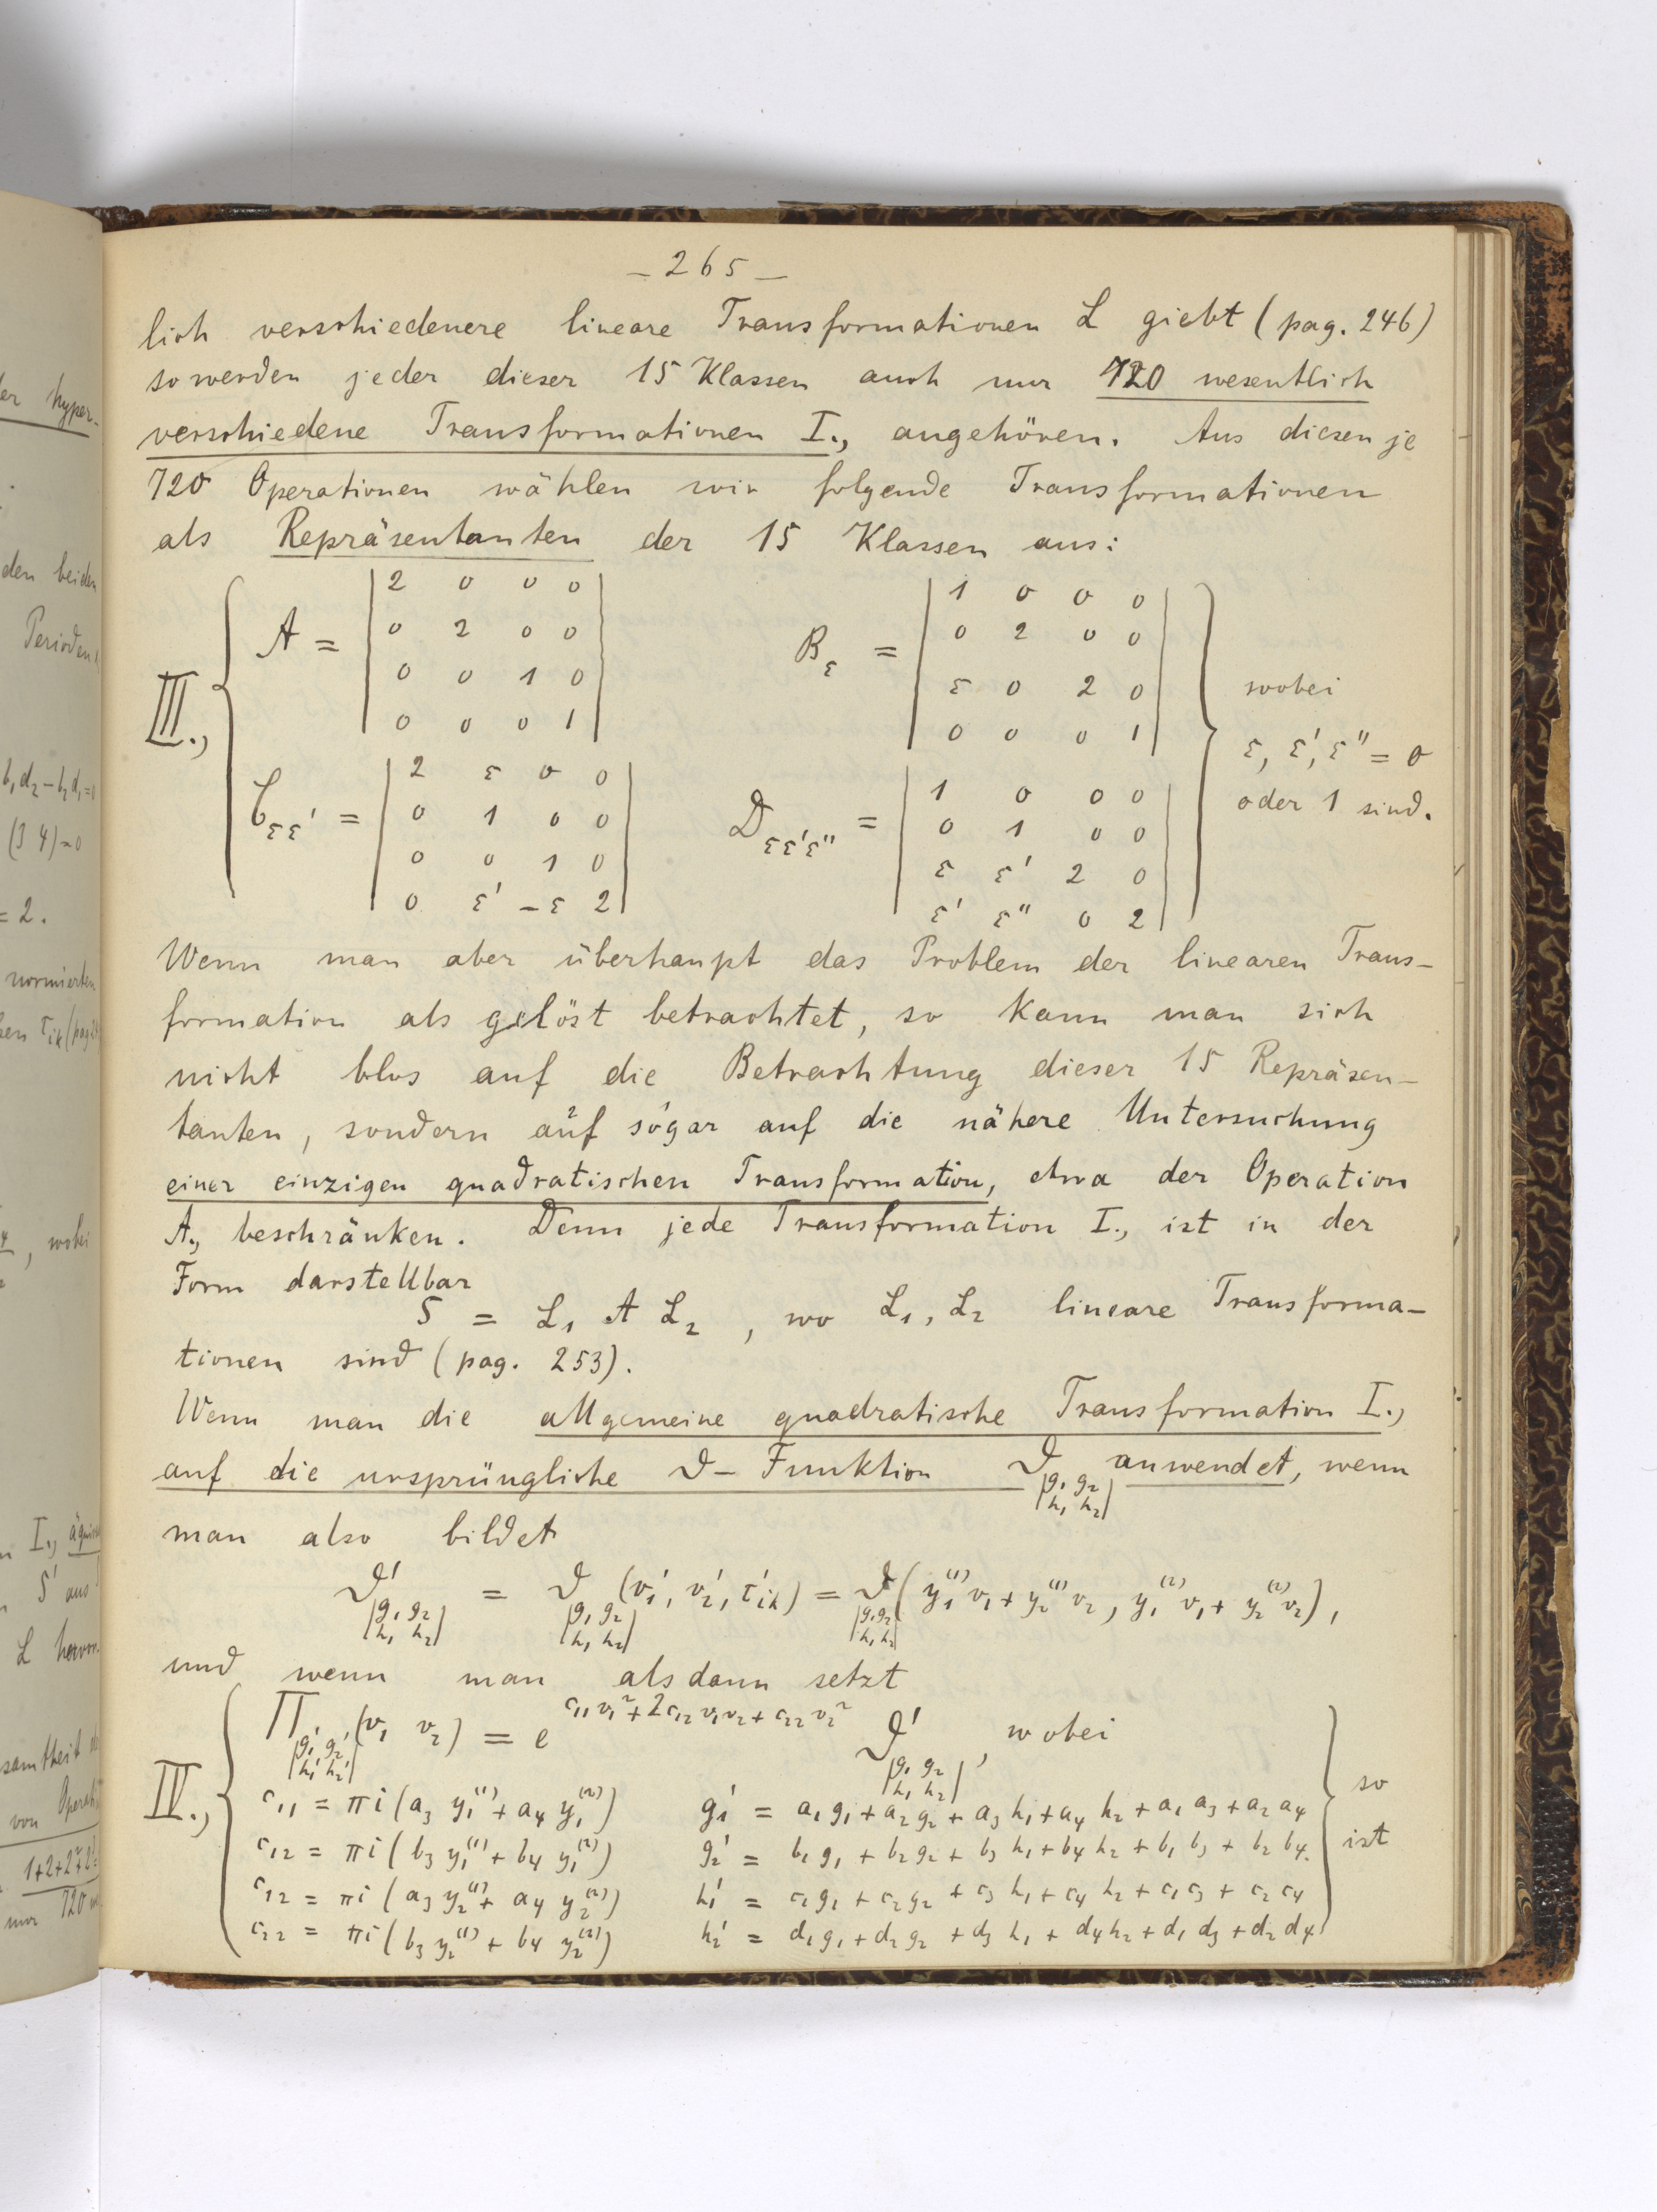 – 265 –
lich verschiedenere lineare Transformationen L giebt (pag. 246)
so werden jeder dieser 15 Klassen auch nur 720 wesentlich
verschiedene Transformationen I., angehören. Aus diesen je
720 Operationen wählen wir folgende Transformationen
als Repräsentanten der 15 Klassen aus:
III.,
A = | 2 0 0 0 |
| 0 2 0 0 |
| 0 0 1 0 |
| 0 0 0 1 |
B_ε = | 1 0 0 0 |
| 0 2 0 0 |
| ε 0 2 0 |
| 0 0 0 1 |
C_εε' = | 2 ε 0 0 |
| 0 1 0 0 |
| 0 0 1 0 |
| 0 ε' –ε 2 |
D_εε'ε'' = | 1 0 0 0 |
| 0 1 0 0 |
| ε ε' 2 0 |
| ε' ε'' 0 2 |
wobei
ε, ε', ε'' = 0
oder 1 sind.
Wenn man aber überhaupt das Problem der linearen Trans–
formation als gelöst betrachtet, so kann man sich
nicht blos auf die Betrachtung dieser 15 Repräsen–
tanten, sondern auf sogar auf die nähere Untersuchung
einer einzigen quadratischen Transformation, etwa der Operation
A., beschränken. Denn jede Transformation I., ist in der
Form darstellbar
S = L₁ A L₂, wo L₁, L₂ lineare Transforma–
tionen sind (pag. 253).
Wenn man die allgemeine quadratische Transformation I.,
auf die ursprüngliche ϑ– Funktion ϑ_|g₁ g₂ h₁ h₂| anwendet, wenn
man also bildet
ϑ'_|g₁ g₂ h₁ h₂| = ϑ_|g₁ g₂ h₁ h₂| (v₁', v₂', τ'ik) = ϑ_|g₁ g₂ h₁ h₂| (y₁⁽¹⁾ v₁ + y₂⁽¹⁾ v₂, y₁⁽²⁾ v₁ + y₂⁽²⁾ v₂),
und wenn man alsdann setzt
IV.,
Π_|g₁' g₂' h₁' h₂'| (v₁ v₂) = e^(c₁₁v₁² + 2c₁₂v₁v₂ + c₂₂v₂²) ϑ'_|g₁ g₂ h₁ h₂|, wobei
c₁₁ = πi (a₃ y₁⁽¹⁾ + a₄ y₁⁽²⁾) g₁' = a₁g₁ + a₂g₂ + a₃h₁ + a₄h₂ + a₁a₃ + a₂a₄
c₁₂ = πi (b₃ y₁⁽¹⁾ + b₄ y₁⁽²⁾) g₂' = b₁g₁ + b₂g₂ + b₃h₁ + b₄h₂ + b₁b₃ + b₂b₄
c₁₂ = πi (a₃ y₂⁽¹⁾ + a₄ y₂⁽²⁾) h₁' = c₁g₁ + c₂g₂ + c₃h₁ + c₄h₂ + c₁c₃ + c₂c₄
c₂₂ = πi (b₃ y₂⁽¹⁾ + b₄ y₂⁽²⁾) h₂' = d₁g₁ + d₂g₂ + d₃h₁ + d₄h₂ + d₁d₃ + d₂d₄
so
ist